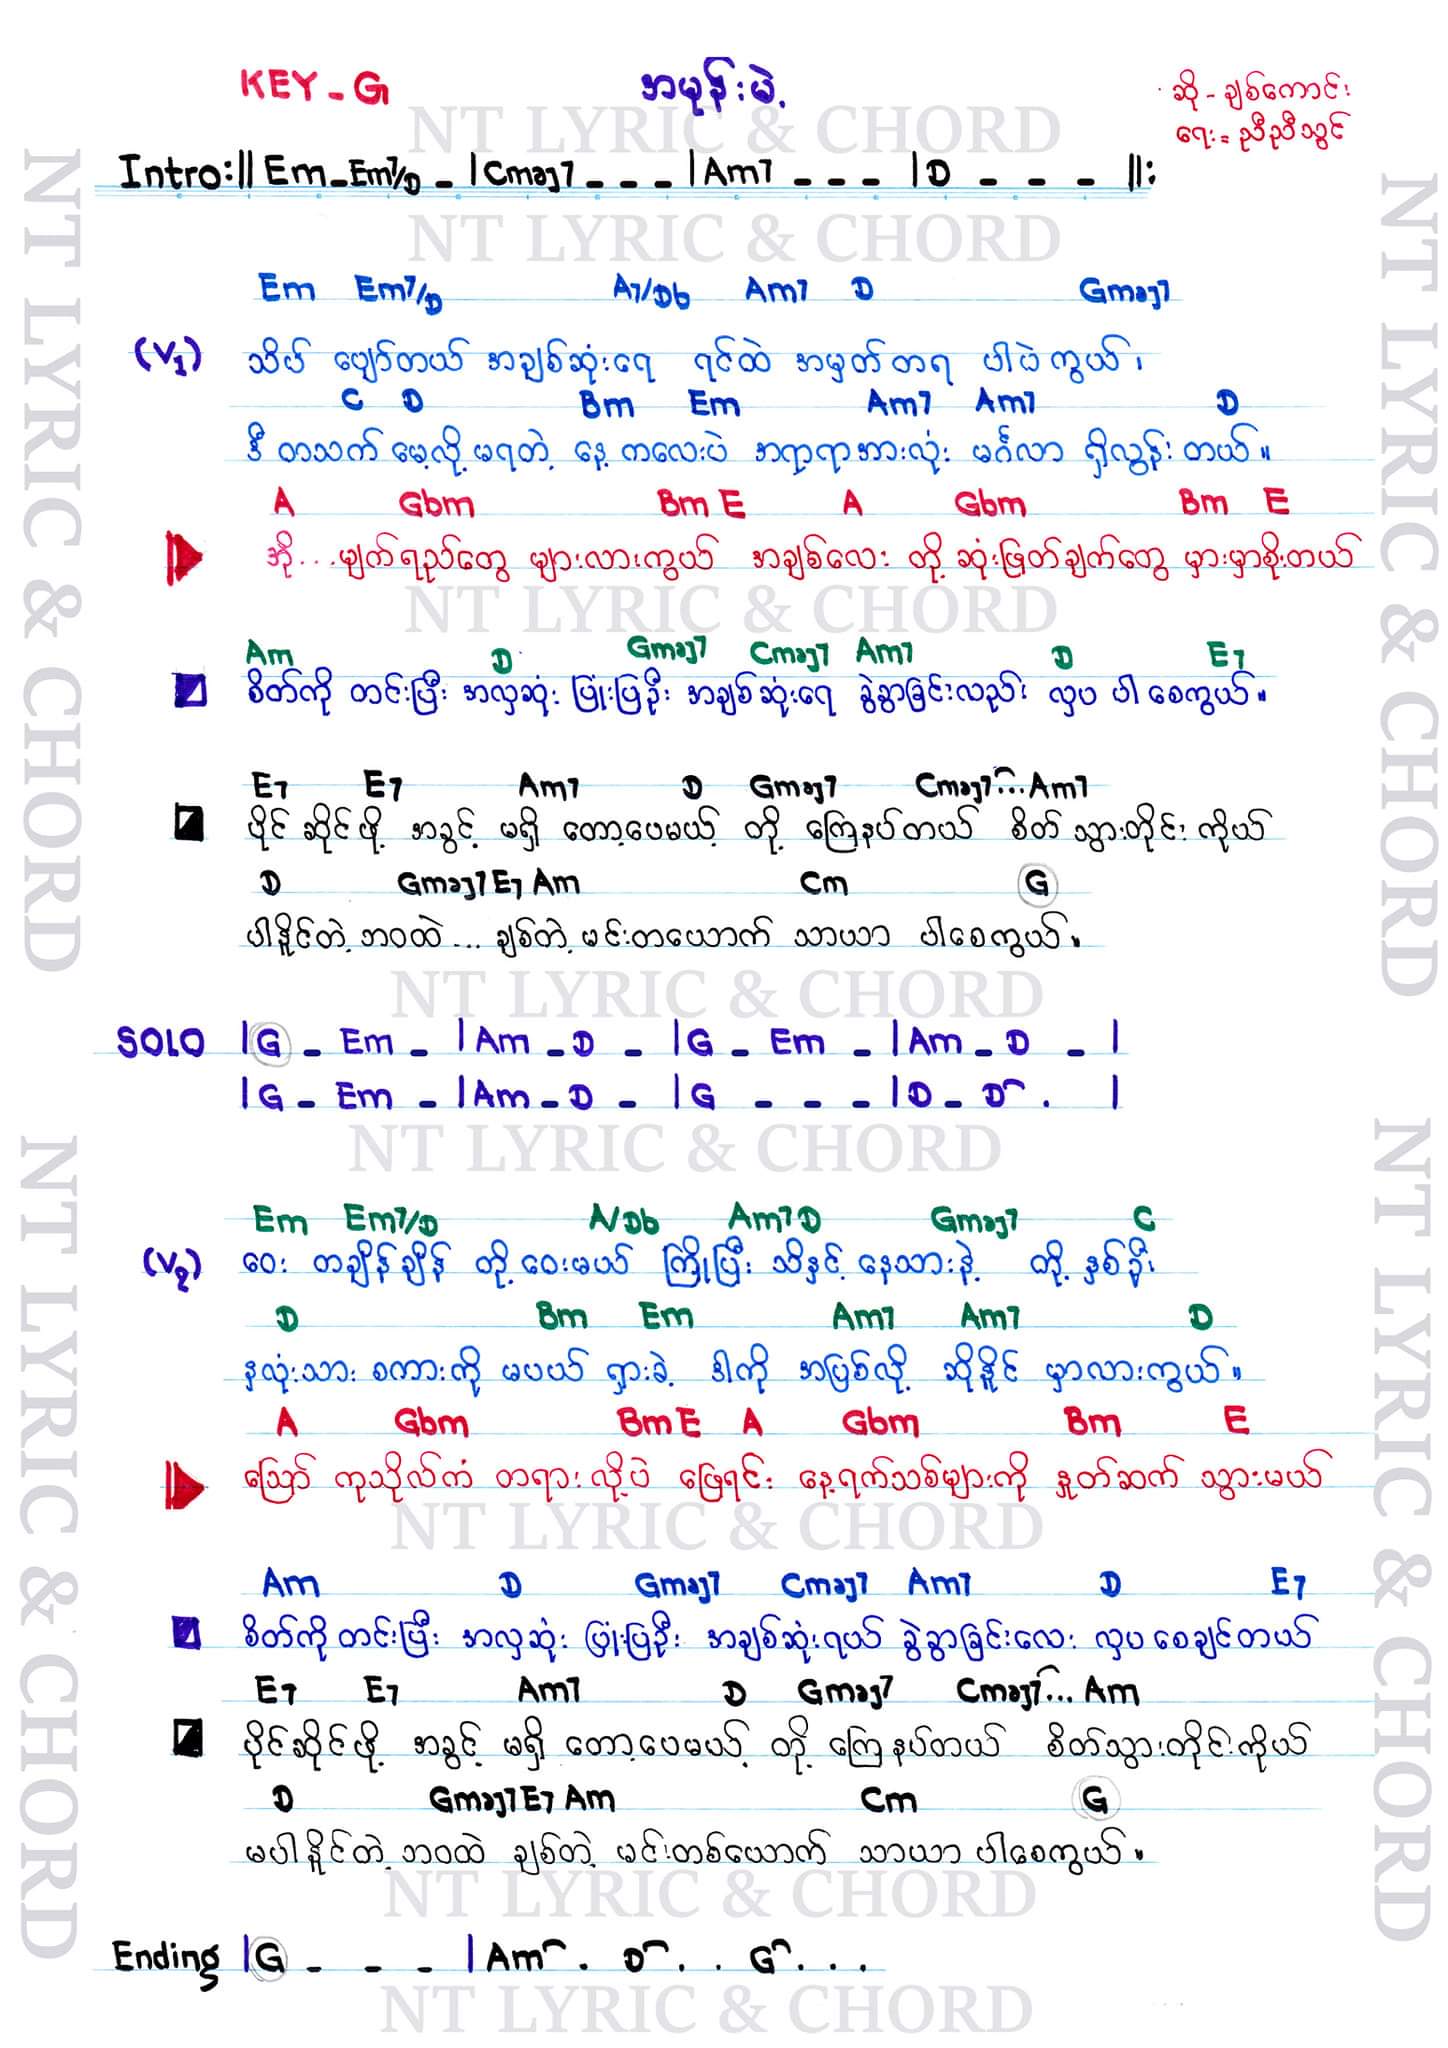 KEY - G
အမုန်းမဲ့
ဆို - ချစ်ကောင်း
ရေး = ညီညီသွင်
NT LYRIC & CHORD
Intro: || Em - Em7/D - | Cmaj7 - - - | Am7 - - - | D - - - ||:
NT LYRIC & CHORD
Em Em7/D A7/Db Am7 D Gmaj7
(V1) သိပ် ပျော်တယ် အချစ်ဆုံးရေ ရင်ထဲ အမှတ်တရ ပါပဲကွယ်၊
C D Bm Em Am7 Am7 D
ဒီ တသက် မေ့လို့ မရတဲ့ နေ့ ကလေးပဲ အရာရာအားလုံး မင်္ဂလာ ရှိလွန်း တယ်။
A Gbm Bm E A Gbm Bm E
အို... မျက်ရည်တွေ များလားကွယ် အချစ်လေး တို့ ဆုံးဖြတ်ချက်တွေ မှားမှာစိုးတယ်
NT LYRIC & CHORD
Am D Gmaj7 Cmaj7 Am7 D E7
စိတ်ကို တင်းပြီး အလှဆုံး ပြုံးပြဦး အချစ်ဆုံးရေ ခွဲခွာခြင်းလည်း လှပ ပါ စေကွယ်။
E7 E7 Am7 D Gmaj7 Cmaj7... Am7
ပိုင်ဆိုင်ဖို့ အခွင့် မရှိ တော့ပေမယ့် တို့ ကြေနပ်တယ် စိတ် သွားတိုင်း ကိုယ်
D Gmaj7 E7 Am Cm G
ပါနိူင်တဲ့ ဘဝထဲ... ချစ်တဲ့ မင်းတယောက် သာယာ ပါစေကွယ်။
NT LYRIC & CHORD
SOLO | G - Em - | Am - D - | G - Em - | Am - D - |
| G - Em - | Am - D - | G - - - | D - D . |
NT LYRIC & CHORD
Em Em7/D A/Db Am7 D Gmaj7 C
(V2) ဝေး တချိန်ချိန် တို့ ဝေးမယ် ကြိုပြီး သိနှင့် နေသားနဲ့ တို့ နှစ်ဦး
D Bm Em Am7 Am7 D
နှလုံးသား စကားကို မပယ် ရှားခဲ့ ဒါကို အပြစ်လို့ ဆိုနိူင် မှာလားကွယ်။
A Gbm Bm E A Gbm Bm E
ဪ ကုသိုလ်ကံ တရား လို့ပဲ ဖြေရင်း နေ့ရက်သစ်များကို နှုတ်ဆက် သွားမယ်
NT LYRIC & CHORD
Am D Gmaj7 Cmaj7 Am7 D E7
စိတ်ကို တင်းပြီး အလှဆုံး ပြုံးပြဦး အချစ်ဆုံးရယ် ခွဲခွာခြင်းလေး လှပ စေချင်တယ်
E7 E7 Am7 D Gmaj7 Cmaj7... Am
ပိုင်ဆိုင်ဖို့ အခွင့် မရှိ တော့ပေမယ့် တို့ ကြေနပ်တယ် စိတ်သွားတိုင်းကိုယ်
D Gmaj7 E7 Am Cm G
မပါနိူင်တဲ့ ဘဝထဲ ချစ်တဲ့ မင်းတစ်ယောက် သာယာ ပါစေကွယ်။
NT LYRIC & CHORD
Ending | G - - - | Am . D . . G . . .
NT LYRIC & CHORD
NT LYRIC & CHORD
NT LYRIC & CHORD
NT LYRIC & CHORD
NT LYRIC & CHORD